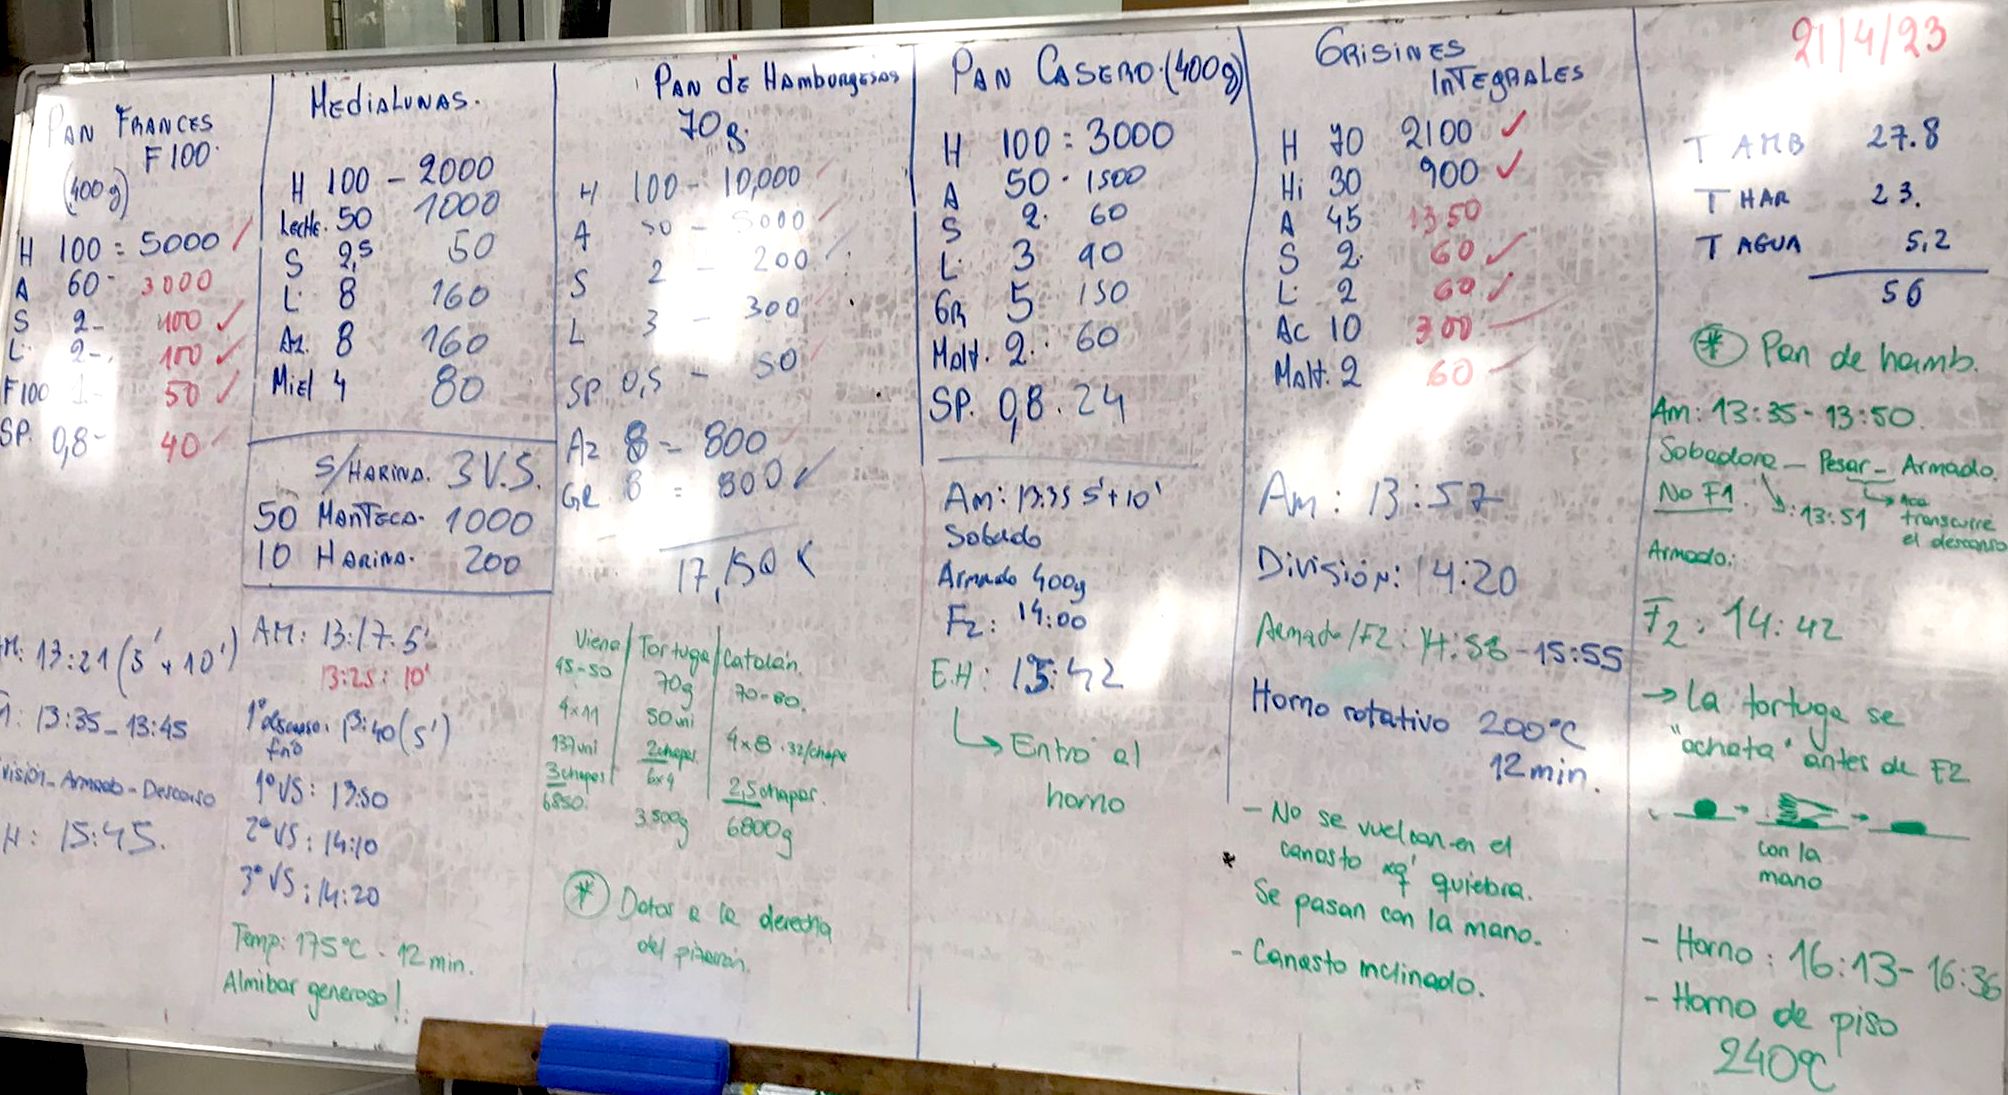 PAN FRANCES
F100
(400g)
H 100 = 5000
A 60 - 3000
S 2 - 100
L 2 - 100
F100 1 - 50
SP. 0,8 - 40
M: 13:21 (5' + 10')
1: 13:35 - 13:45
visión - Armado - Descanso
H: 15:45.
MEDIALUNAS.
H 100 - 2000
Leche. 50 1000
S 2,5 50
L 8 160
Az. 8 160
Miel 4 80
S/HARINA. 3 V.S.
50 MANTECA - 1000
10 HARINA. 200
AM: 13:17. 5'
13:25: 10'
1º descanso: 13:40 (5')
frío
1º VS: 13:50
2º VS: 14:10
3º VS: 14:20
Temp: 175°C - 12 min.
Almibar generoso!
PAN de HAMBURGESAS
70g.
H 100 - 10,000
A 50 - 5000
S 2 - 200
L 3 - 300
SP 0,5 - 50
Az 8 = 800
GR 8 = 800
17,150 K
Viena / Tortuga / Catalán.
45-50 70g 70-80.
4x11 50 uni 4x8 - 32/chapa
137 uni 2 chapas 2,5 chapas.
3 chapas 6x4
6850 3.500g 6800g
* Datos a la derecha
del pizarrón.
PAN CASERO. (400g)
H 100 = 3000
A 50 - 1500
S 2. 60
L. 3 90
GR 5 150
Malt. 2. 60
SP. 0,8. 24
Am: 13:35 5'+10'
Sobado
Armado 400g
F2: 14:00
E.H: 15:42
Entró al
horno
GRISINES
INTEGRALES
H 70 2100 ✓
Hi 30 900 ✓
A 45 1350
S 2. 60 ✓
L. 2 60 ✓
Ac 10 300
Malt. 2 60
Am: 13:57
División: 14:20
Armado/F2: 14:58 - 15:55
Horno rotativo 200°C
12 min.
- No se vuelcan en el
canasto xq' quiebra.
Se pasan con la mano.
- Canasto inclinado.
21/4/23
T AMB 27.8
T HAR 23.
T AGUA 5,2
56
* Pan de hamb.
Am: 13:35 - 13:50.
Sobadora - Pesar - Armado.
No F1 : 13:51 Acá
transcurre
el descanso
Armado:
F2: 14:42
→ La tortuga se
"achata" antes de F2
con la
mano
- Horno: 16:13 - 16:36
- Horno de piso
240°C